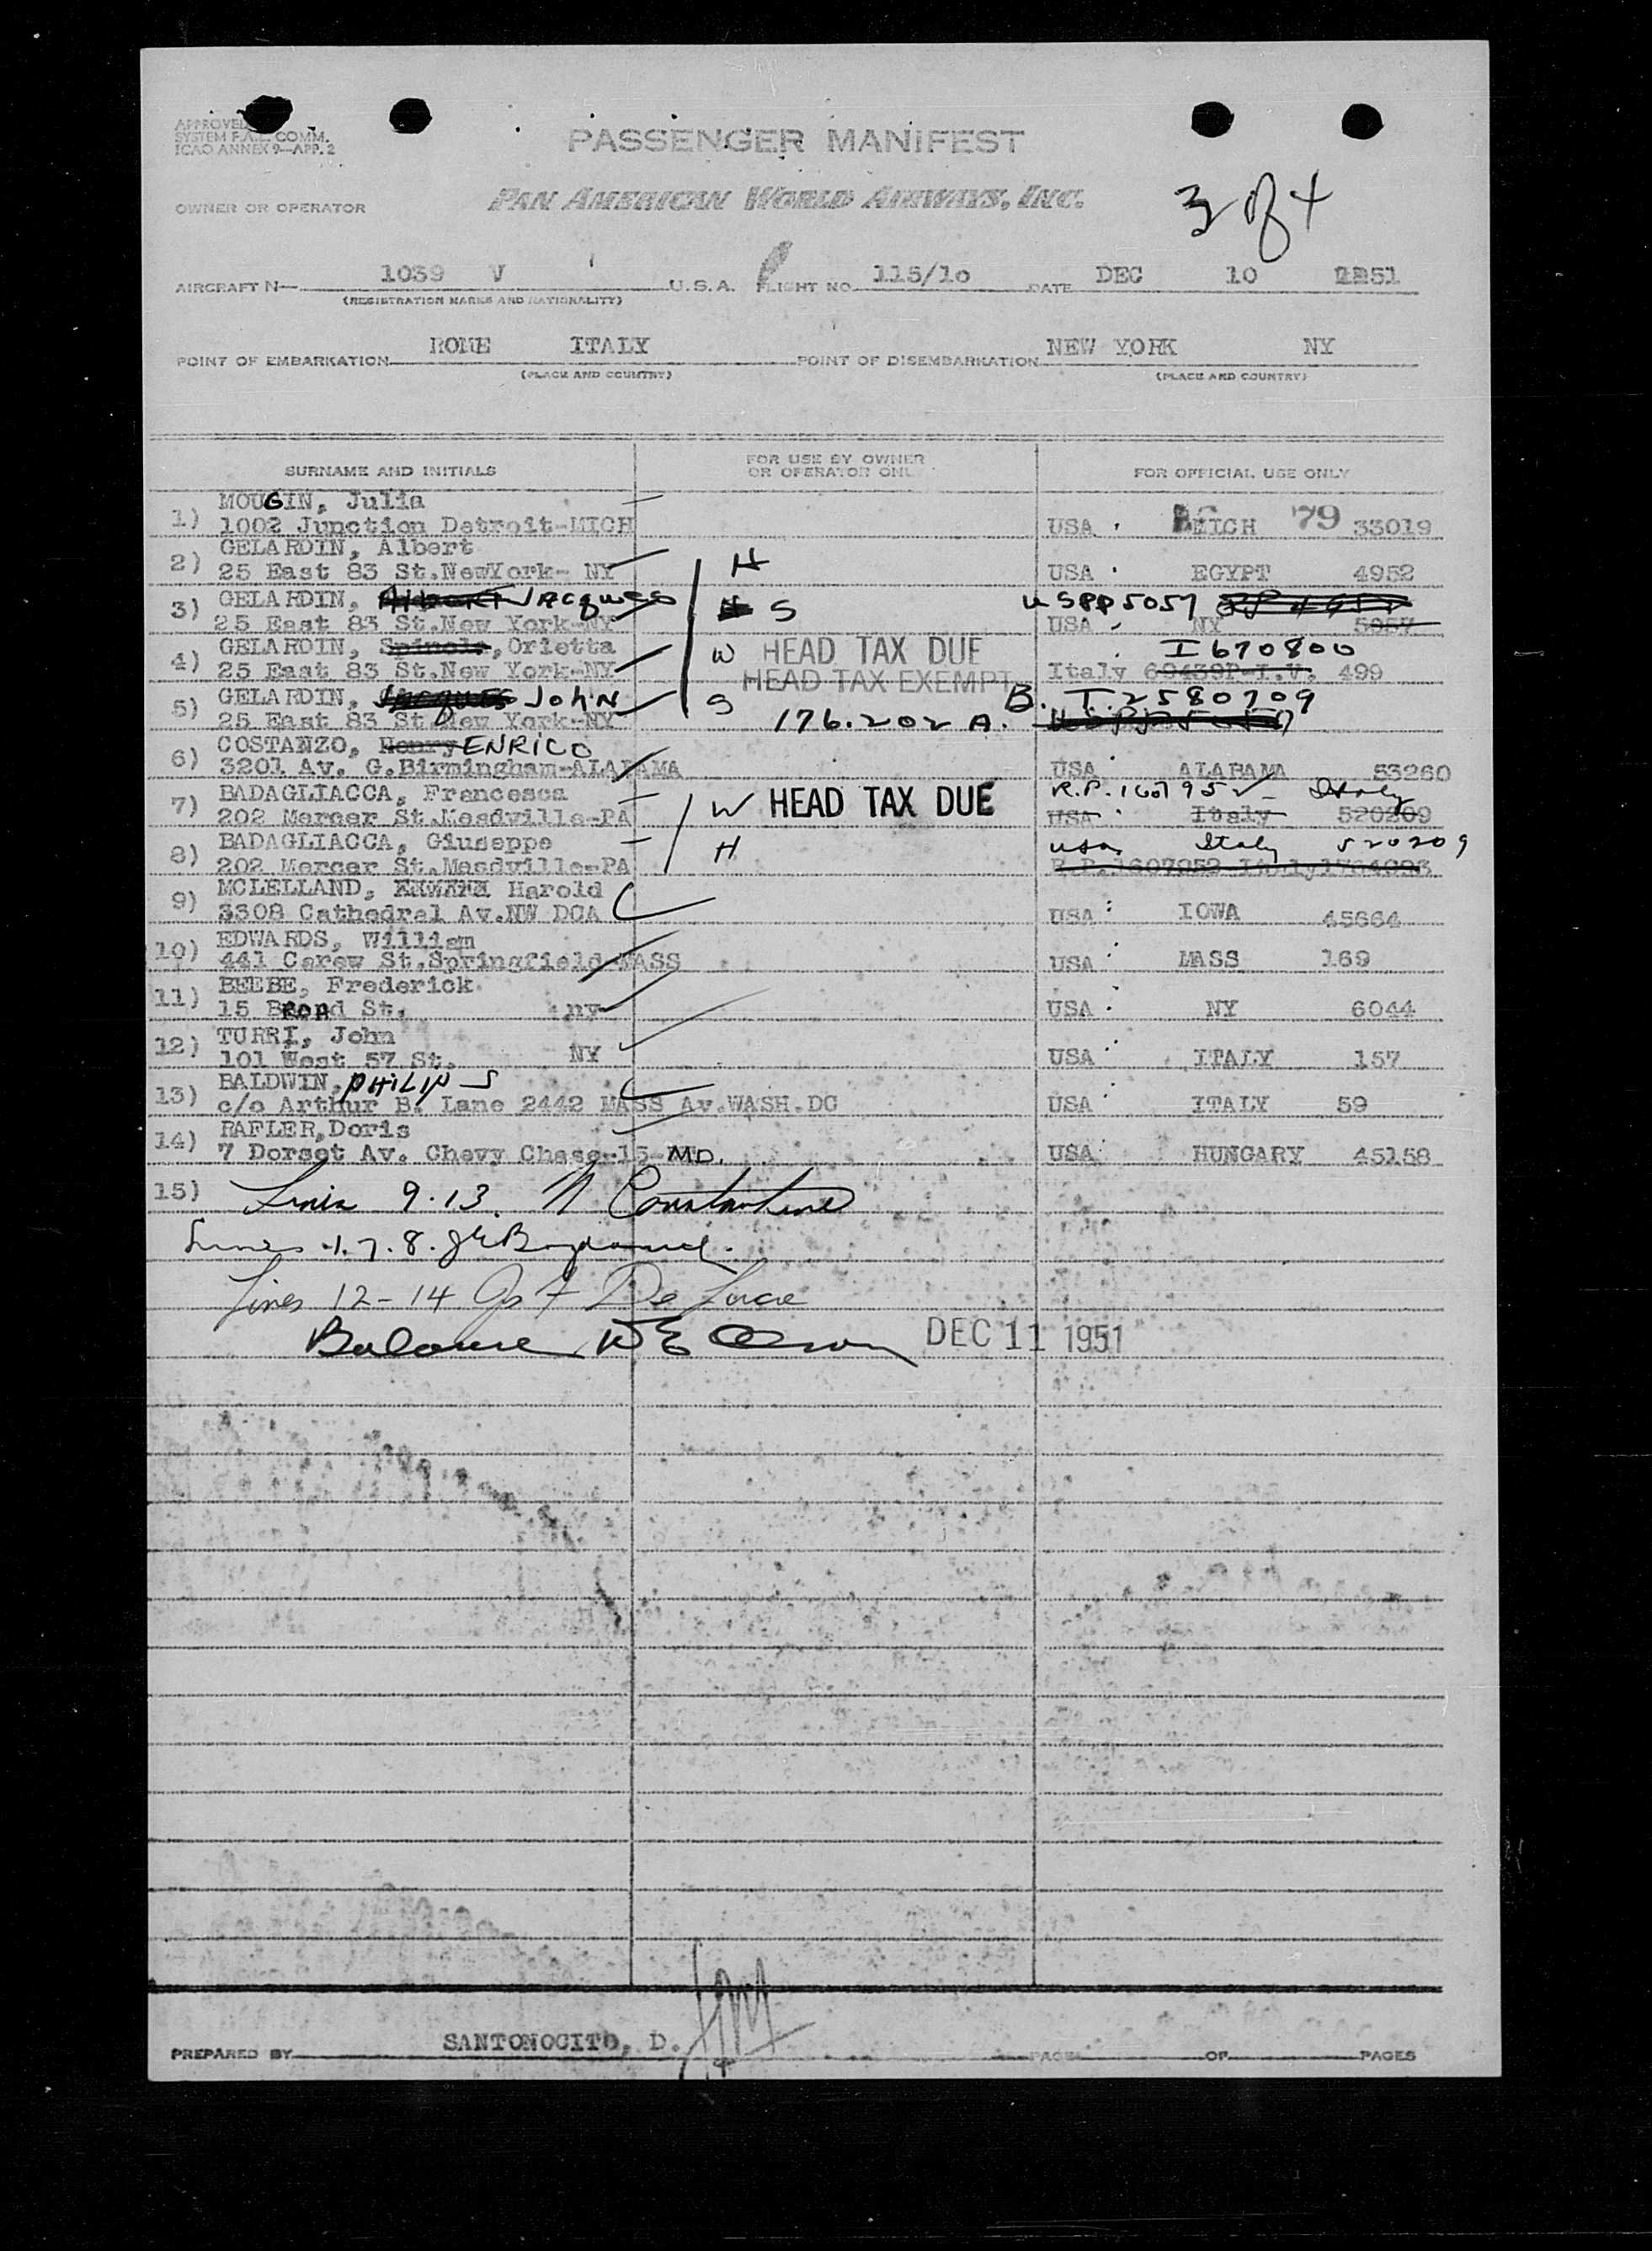 APPROVED
SYSTEM F.A.L. COMM.
ICAO ANNEX 9—APP. 2
PASSENGER MANIFEST
OWNER OR OPERATOR PAN AMERICAN WORLD AIRWAYS, INC.
3 of 4
AIRCRAFT N— 1039 V U.S.A. FLIGHT NO. 115/10 DATE DEC 10 51
(REGISTRATION MARKS AND NATIONALITY)
POINT OF EMBARKATION ROME ITALY POINT OF DISEMBARKATION NEW YORK NY
(PLACE AND COUNTRY) (PLACE AND COUNTRY)
SURNAME AND INITIALS FOR USE BY OWNER OR OPERATOR ONL FOR OFFICIAL USE ONLY
1) MOUGIN, Julia
1002 Junction Detroit-MICH USA MICH '79 33019
2) GELARDIN, Albert
25 East 83 St.NewYork- NY H USA EGYPT 4952
3) GELARDIN, JACQUES S USPP5057
25 East 83 St.New York-NY USA NY 5057
4) GELARDIN, Spinola, Orietta W HEAD TAX DUE I 670800
25 East 83 St.New York-NY HEAD TAX EXEMPT Italy 60439P-I.V. 499
5) GELARDIN, JACQUES JOHN S B. T.2580709
25 East 83 St.New York-NY 176.202 A.
6) COSTANZO, Henry ENRICO
3201 Av. G.Birmingham-ALABAMA USA ALABAMA 53260
7) BADAGLIACCA, Francesca W HEAD TAX DUE R.P. Italy
202 Mercer St.Meadville-PA USA Italy 520209
8) BADAGLIACCA, Giuseppe H USA Italy 520209
202 Mercer St.Meadville-PA R.P.1607952-Italy
9) MCLELLAND, Harold
3308 Cathedral Av.NW DCA USA IOWA 45664
10) EDWARDS, William
441 Carew St.Springfield-MASS USA MASS 169
11) BEEBE, Frederick
15 BROAd St. ny USA NY 6044
12) TURRI, John
101 West 57 St. NY USA ITALY 157
13) BALDWIN, PHILIP S
c/o Arthur B. Lane 2442 MASS Av.WASH.DC USA ITALY 59
14) RAFLER,Doris
7 Dorset Av. Chevy Chase-15-MD. USA HUNGARY 45158
15) Lines 9.13. N Constantine
Lines 1.7.8.
Lines 12-14 De Luca
Balance DEC 11 1951
PREPARED BY SANTONOCITO, D. PAGE OF PAGES